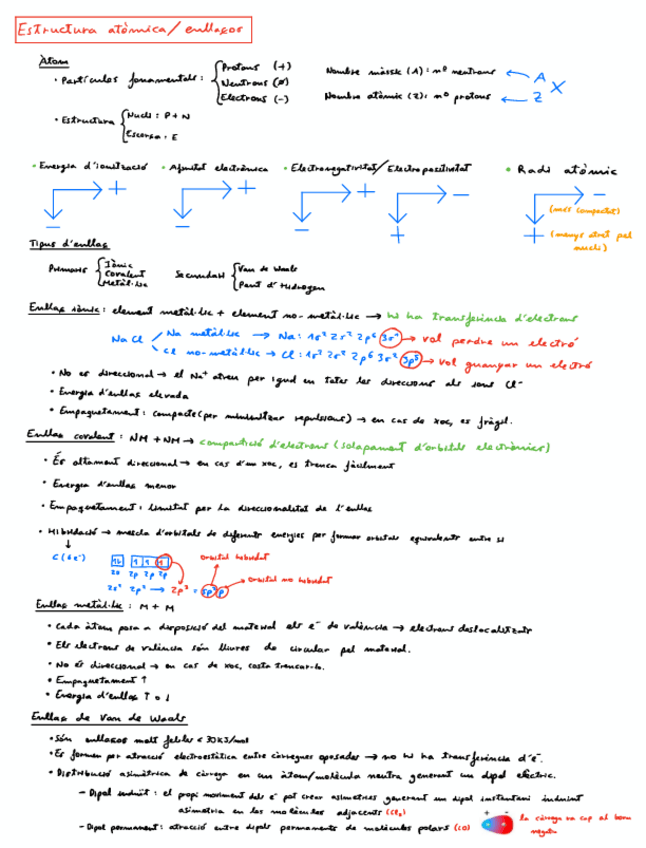 Estructura atòmica / enllaços
Àtom
• Partícules fonamentals: Protons (+)
Neutrons (ø)
Electrons (-)
Nombre màssic (A): nº neutrons ← A X
Nombre atòmic (Z): nº protons ← Z
• Estructura Nucli: P + N
Escorça: E
• Energia d'ionització • Afinitat electrònica • Electronegativitat/Electropositivitat • Radi atòmic
+ + + - -
(més compactat)
- - - + + (menys atret pel nucli)
Tipus d'enllaç
Primaris Iònic
Covalent
Metàl·lic
Secundari Van de Waals
Pont d'Hidrogen
Enllaç iònic: element metàl·lic + element no-metàl·lic → hi ha transferència d'electrons
NaCl Na metàl·lic → Na: 1s² 2s² 2p⁶ 3s¹ → vol perdre un electró
Cl no-metàl·lic → Cl: 1s² 2s² 2p⁶ 3s² 3p⁵ → vol guanyar un electró
• No es direccional → el Na⁺ atreu per igual en totes les direccions als ions Cl⁻
• Energia d'enllaç elevada
• Empaquetament: compacte (per minimitzar repulsions) → en cas de xoc, es fràgil.
Enllaç covalent: NM + NM → compartició d'electrons (solapament d'orbitals electrònics)
• És altament direccional → en cas d'un xoc, es trenca fàcilment
• Energia d'enllaç menor
• Empaquetament: limitat per la direccionalitat de l'enllaç
• Hibridació → mescla d'orbitals de diferents energies per formar orbitals equivalents entre si
C (6e⁻)
orbital hibridat
2s 2p 2p 2p
orbital no hibridat
2s² 2p² → 2p³ = sp² p
Enllaç metàl·lic: M + M
• Cada àtom posa a disposició del material els e⁻ de valència → electrons deslocalitzats
• Els electrons de valència són lliures de circular pel material.
• No és direccional → en cas de xoc, costa trencar-lo.
• Empaquetament ↑
• Energia d'enllaç ↑ o ↓
Enllaç de Van de Waals
• Són enllaços molt febles < 30KJ/mol
• Es formen per atracció electroestàtica entre càrregues oposades → no hi ha transferència d'e⁻.
• Distribució asimètrica de càrrega en un àtom/molècula neutra generant un dipol elèctric.
- Dipol induït: el propi moviment dels e⁻ pot crear asimetries generant un dipol instantani induint
asimetria en les molècules adjacents (Cl₂)
- Dipol permanent: atracció entre dipols permanents de molècules polars (CO)
+ -
la càrrega va cap al born
negatiu